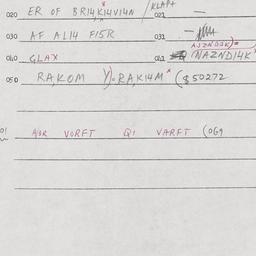 020 ER OF BRI4,KI4VI4N / KLAP+
021 —
030 AF ALI4 FI5R
031 —
040 GLAX
041 NAZNDI4K
050 RAKOM Y).RAKI4M* ($50272
01 VORFT QI VARFT (069